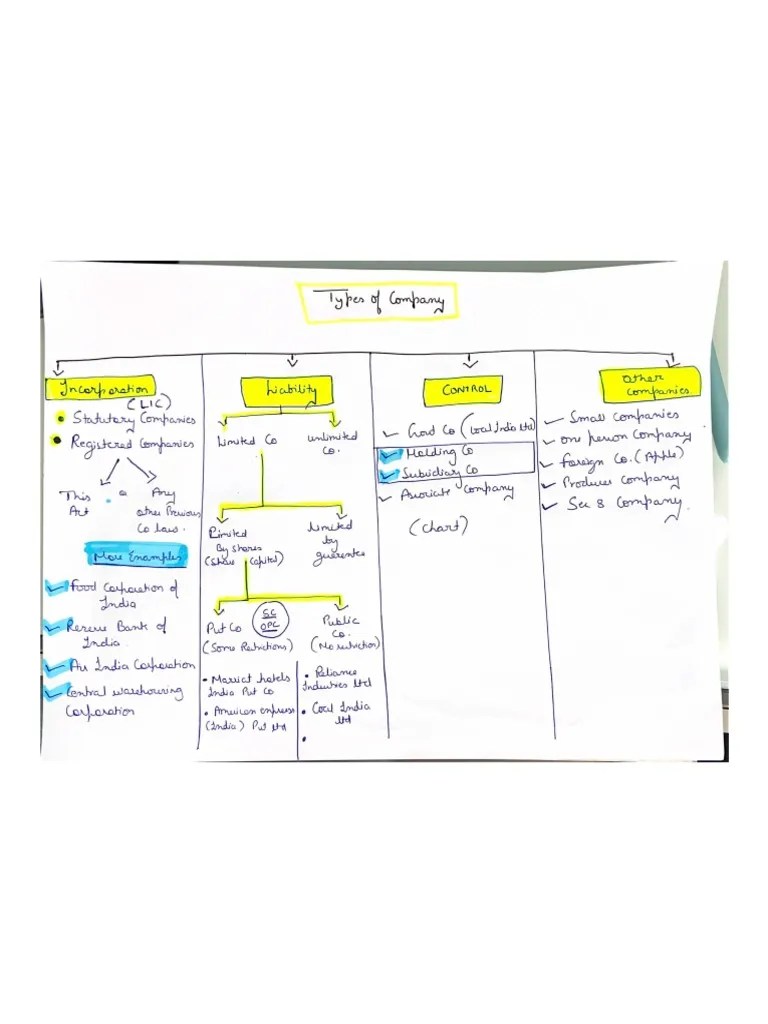 Types of Company
Incorporation
(LIC)
Statutory Companies
Registered Companies
This
Act
or
Any
other Previous
Co laws.
More Examples
Food Corporation of
India
Reserve Bank of
India
Air India Corporation
Central warehousing
Corporation
Liability
Limited Co
unlimited
Co.
Limited
By shares
(Share Capital)
Limited
by
guarantee
Pvt Co
(Some Restrictions)
SC
OPC
Public
Co.
(No restriction)
Marriot hotels
India Pvt Co
American express
(India) Pvt ltd
Reliance
Industries ltd
Coal India
ltd
CONTROL
Govt Co (Coal India ltd)
Holding Co
Subsidiary Co
Associate Company
(Chart)
Other
Companies
Small Companies
one person Company
foreign Co. (Apple)
Producer Company
Sec 8 Company